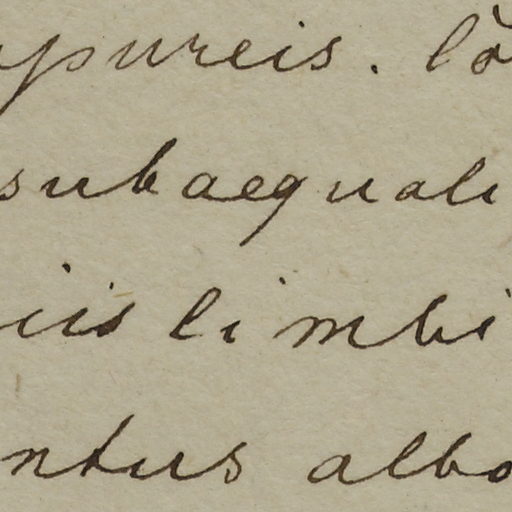 pureis. lo
subaequali
iis limbi
ntus albo